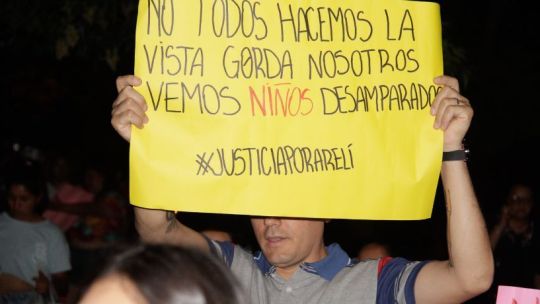 NO TODOS HACEMOS LA
VISTA GORDA NOSOTROS
VEMOS NIÑOS DESAMPARADOS
#JUSTICIAPORARELÍ